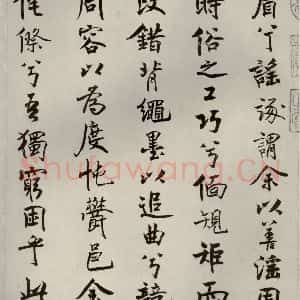 眉兮謠諑謂余以善淫固
時俗之工巧兮偭規矩而
改錯背繩墨以追曲兮競
周容以為度忳鬱邑余
侘傺兮吾獨窮困乎此
Shufawang.CN